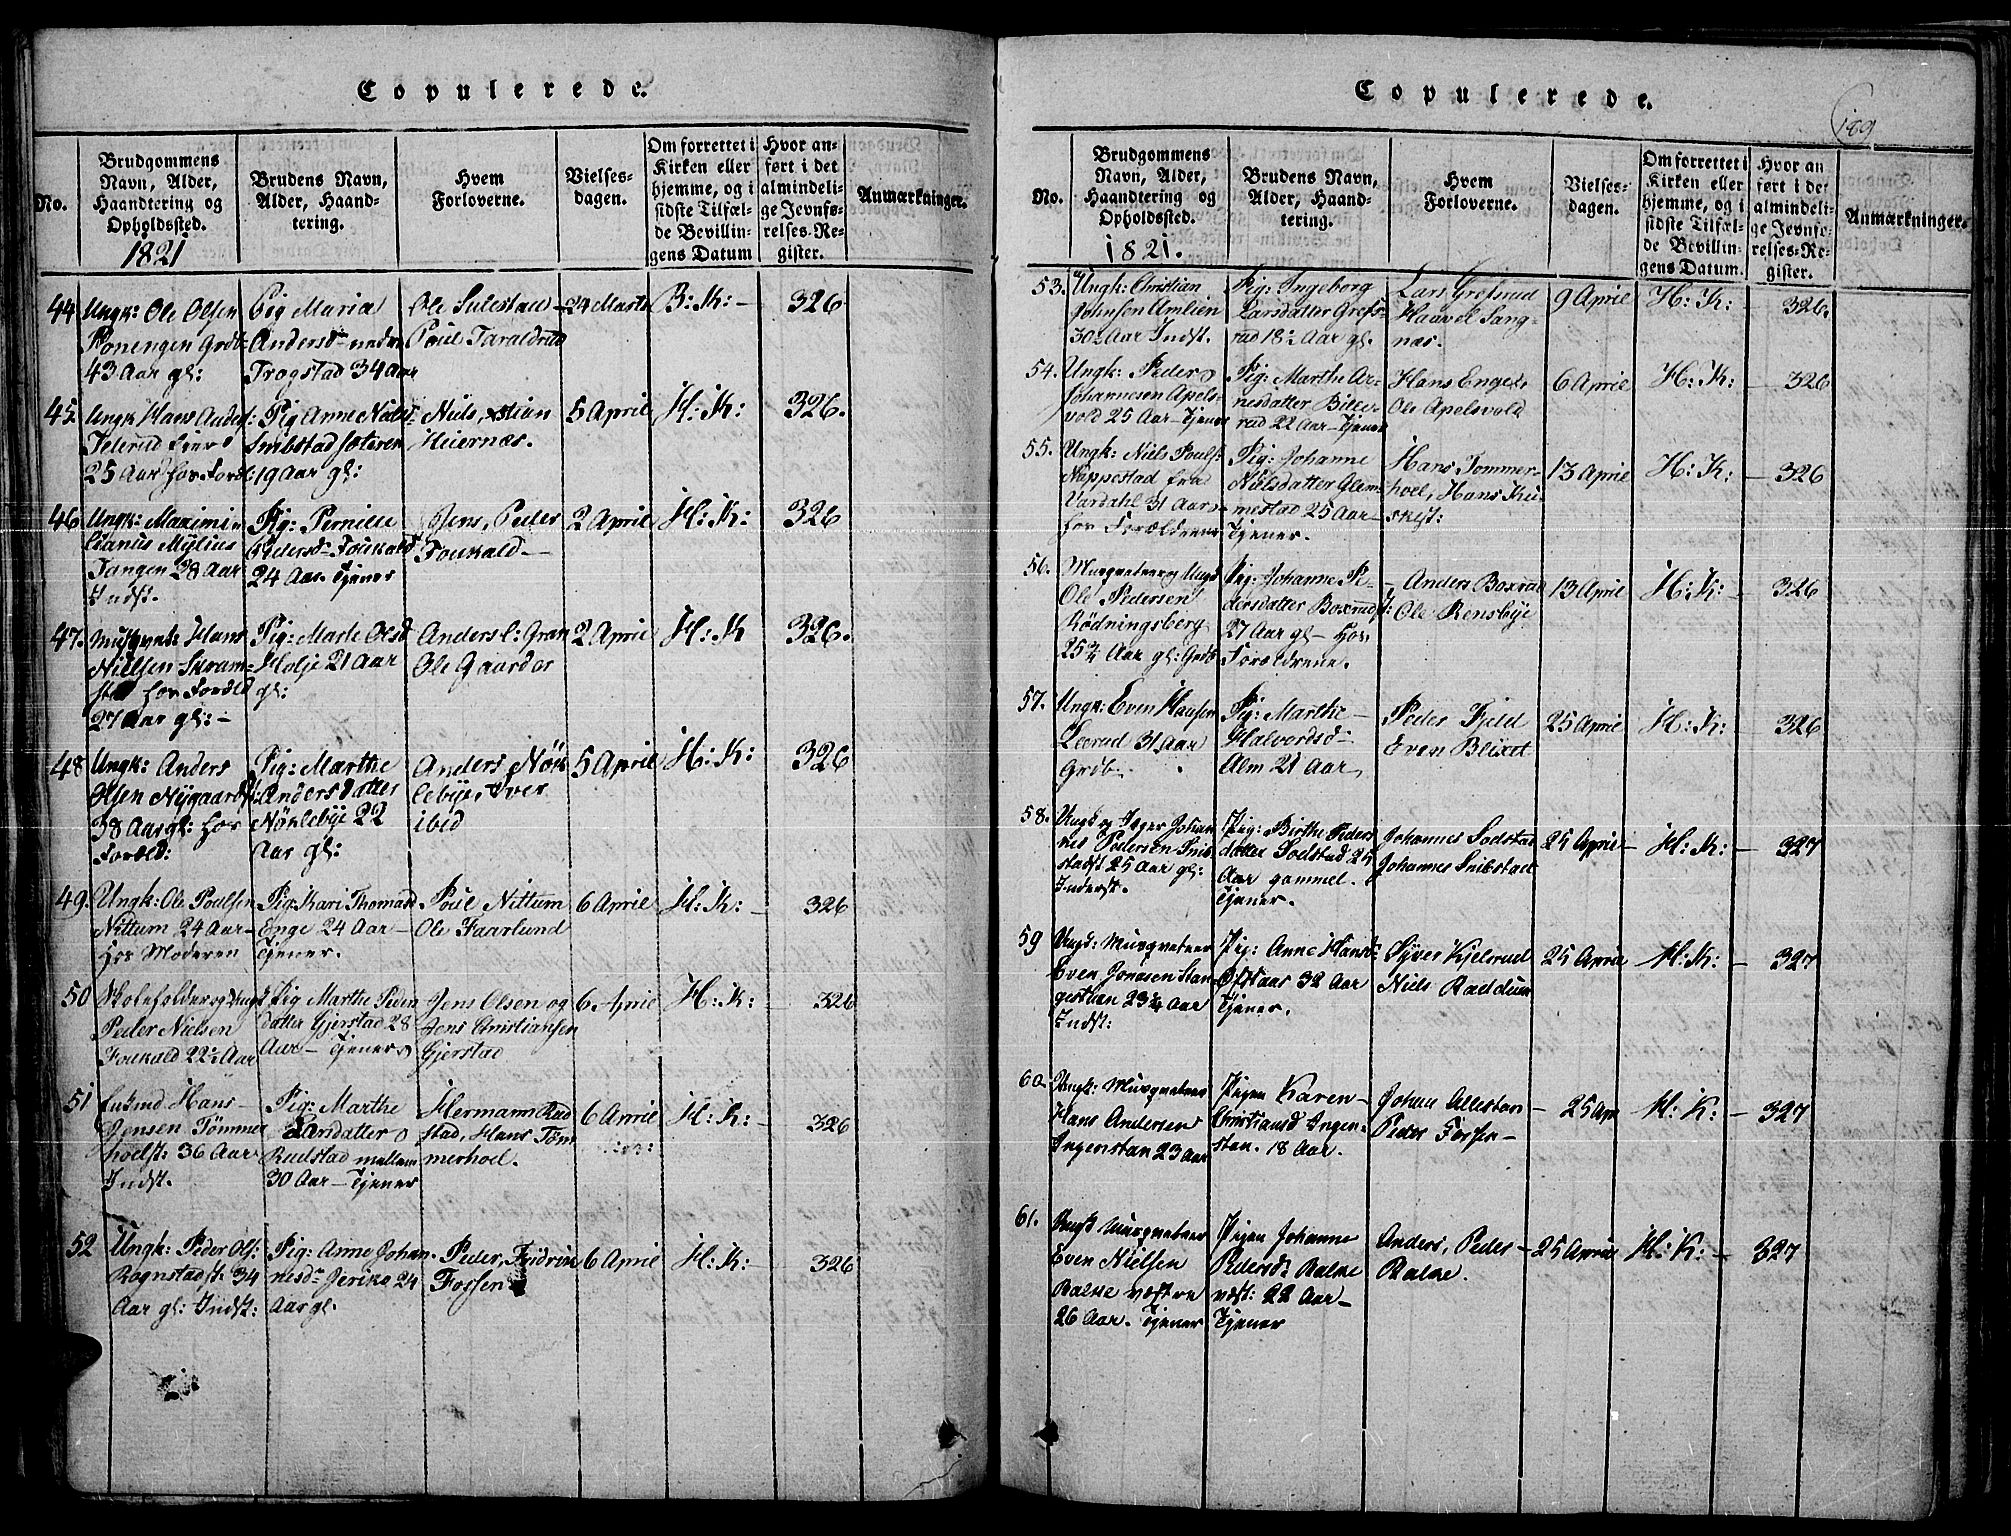 Copulerede.
No.
Brudgommens
Navn, Alder,
Haandtering og
Opholdssted.
1821
Brudens Navn,
Alder, Haand-
tering.
Hvem
Forloverne.
Vielses-
dagen.
Om forrettet i
Kirken eller
hjemme, og i
sidste Tilfæl-
de Bevillin-
gens Datum
Hvor an-
ført i det
almindeli-
ge Jevnfø-
relses-Re-
gister.
Anmærkninger.
44
Ungk: Ole Olsen
Grdb:
43 Aar gl:
Pig Maria
Andersd- nedre
Trogstad 34 Aar
Ole Sulestad
Poul Taraldrud
24 Marts
B: K: -
326
45.
Ungk Hans Anders:
25 Aar hos Foræld:
Pig Anne Niels:
Snibstad
19 Aar gl:
Niels, Stian
Heiernæs.
5 April
H: K:
326.
46
Ungk: Maximi-
lianus Mylius
Tangen 28 Aar
Indst.
Pig: Pernille
Pedersd- Foukald
24 Aar. Tjener
Jens, Peder
Foukald-
2 April
H: K:
326
47.
Musqvet: Hans
Nielsen Skram-
stad hos Foræld
27 Aar gl: -
Pig: Marte Olsd
Holje 21 Aar
gl:
Anders l: Gran
Ole Gaarder
2 April
H: K
326.
48
Ungk: Anders
Olsen Nygaards
38 Aar gl: hos
Foræld:
Pig: Marthe
Andersdatter
Nøklebye 22
Aar gl:
Anders Nøk
lebye, Iver
ibid
5 April
H: K:
326
49.
Ungk: Ole Poulsen
Nittum 24 Aar-
hos Moderen
Pig: Kari Thomasd
Enge 24 Aar-
Tjener.
Poul Nittum
Ole Faarlund
6 April
H: K: -
326
50
Skoleholder og Ungk
Peder Nielsen
Foukald 22½ Aar
Pig Marthe Peder
datter Gjerstad 28
Aar- Tjener
Jens Olsen og
Jens Christiansen
Gjerstad
6 April
H: K: -
326
51
Enkmd Hans-
Jensen Tømmer
hoelst: 36 Aar
Indst.
Pig: Marthe
Larsdatter
Rudstad mellem
30 Aar- Tjener
Hermann Rud
stad, Hans Tøm
merhoel.
6 April
H: K: -
326
52
Ungk: Peder Ols:
Rognstadst: 34
Aar gl: Indst:
Pig: Anne Johan
nesd- Jeriko 24
Aar gl.
Peder, Fridrik
Fossen
6 April
H: K: -
326
Copulerede.
189
No.
Brudgommens
Navn, Alder,
Haandtering og
Opholdssted.
1821.
Brudens Navn,
Alder, Haand-
tering.
Hvem
Forloverne.
Vielses-
dagen.
Om forrettet i
Kirken eller
hjemme, og i
sidste Tilfæl-
de Bevillin-
gens Datum.
Hvor an
ført i det
almindeli-
ge Jevnfø-
relses-Re-
gister.
Anmærkninger.
53.
Ungk: Christian
Johnsen Amlien
30½ Aar Indst.
Pig: Ingeborg
Larsdatter Grefs-
rud 18½ Aar gl.
Lars Grefsrud
Haavel Sang-
næs.
9 April
H: K: -
326.
54.
Ungk: Peder
Johannesen Apels-
vold 25 Aar- Tjener
Pig: Marthe Ar-
nesdatter Bille-
rud 22 Aar- Tjener
Hans Enge,
Ole Apelsvold
6 April
H: K: -
326
55.
Ungk: Niels Pouls:
Neppestad fra
Vardahl 31 Aar-
hos Forældrene
Pig: Johanne
Nielsdatter Glem-
mestad 25 Aar-
Tjener.
Hans Tommer-
hoel, Hans
13 April
H: K: -
326
56.
Musqveteer og Ungk
Ole Pedersen
Rødningsberg
25¾ Aar gl: Grdb
Pig: Johanne Pe-
dersdatter Boxrud
27 Aar gl- hos
Forældrene.
- Anders Boxrud
Ole Rensbye
13 April
H: K: -
326
57.
Ungk: Even Hansen
31 Aar
Grdb.
Pig: Marthe-
Halvorsd-
Alm 21 Aar
Peder Fjeld
Even Blixet
25 April
H: K: -
326
58.
Ungk og Jæger Johan
nes Pedersen Snib
stadst 25 Aar gl:
Inderst.
Pig: Birthe Peders
datter Sodstad 25
Aar gammel.
Tjener.
Johannes Sodstad
Johannes Snibstad
25 April-
H: K: -
327
59
Ungk: Musqveteer
Even Jonasen Stan
gestuen 23¾ Aar
Indst:
Pig: Anne Hansd:
32 Aar
Tjener.
Syver Kjelsrud
Niels Raddum
25 April
H: K: -
327
60.
Ungk: Musqveteer
Hans Andersen
Ingenstan 23 Aar
Pigen Karen-
Christiansd Ingen-
stan. 18 Aar.
Johan Allestan
Peder Fossen-
25 Apr
H: K: -
327
61.
Ungk Musqveteer
Even Nielsen
Balke vestre
26 Aar. Tjener
Pigen Johanne
Pedersd: Balke
vest: 22 Aar-
Tjener
Anders, Peder-
Balke.
25 April
H: K: -
327